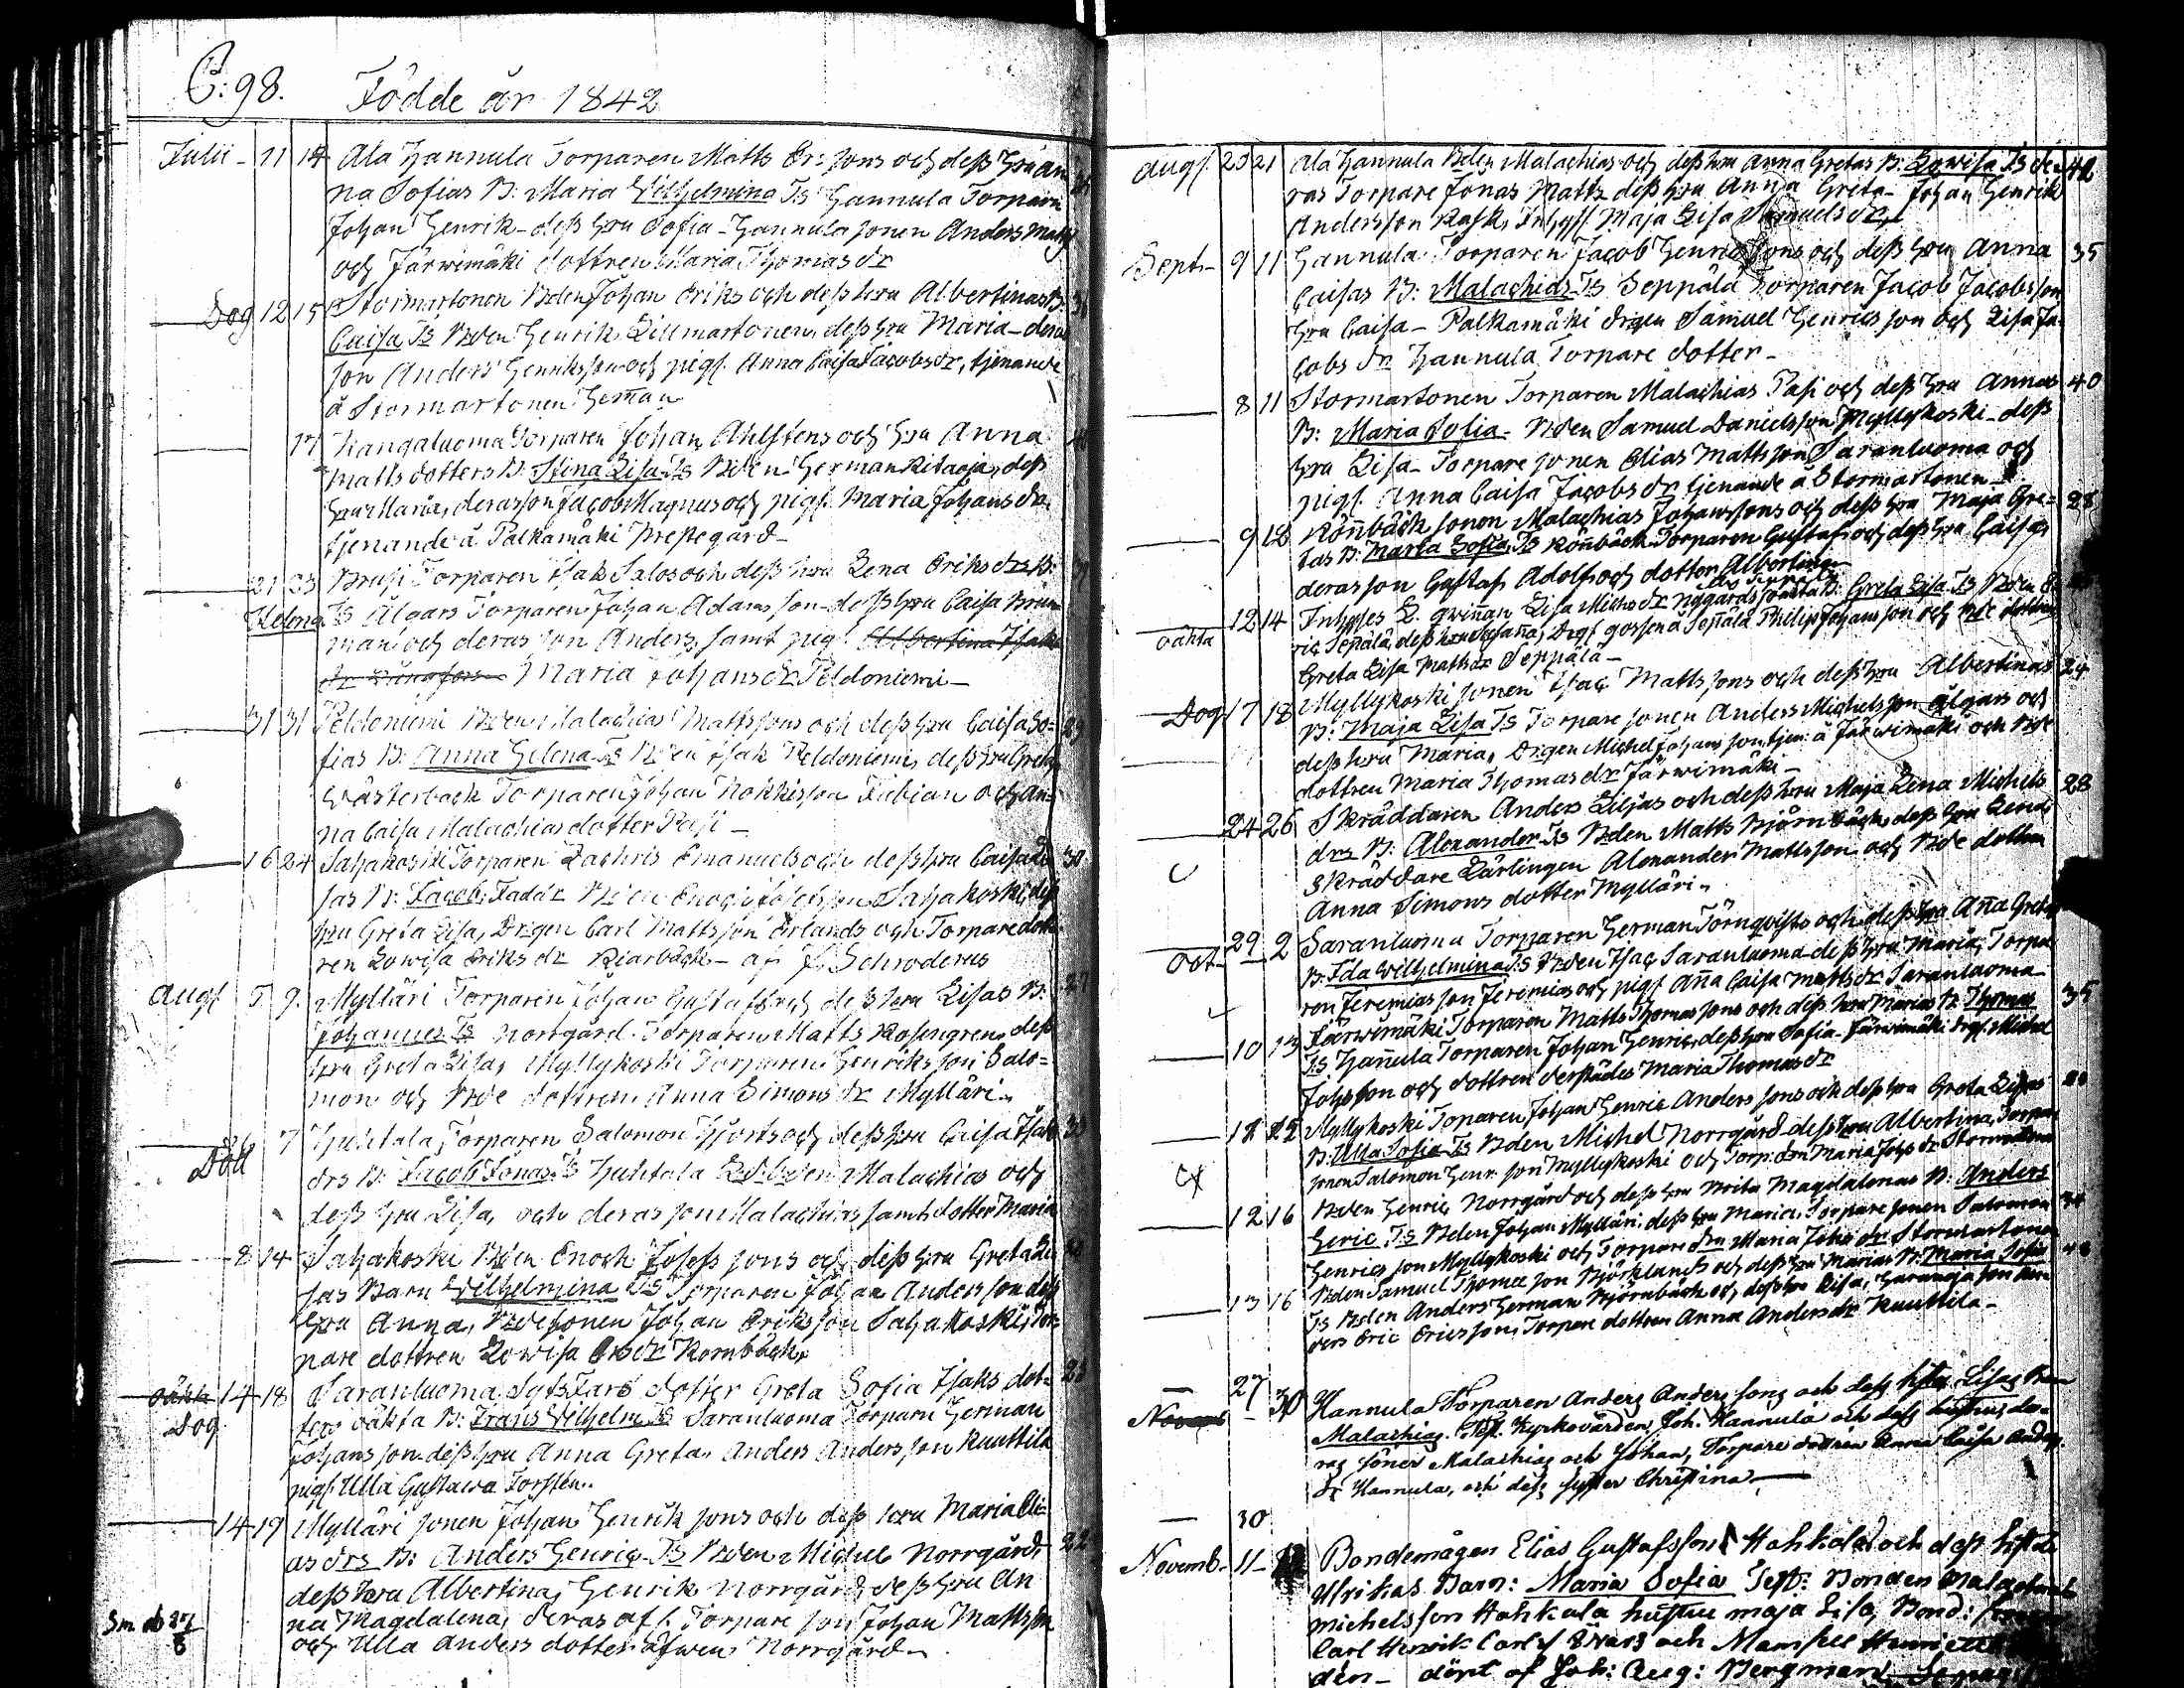 C:98. Födde år 1842
Julii - 11 14 Ala Hannula Torparen Matts Ers sons och dess hru An
na Sofias B: Maria Wilhelmina Ts Hannula Torparn
Johan Henrik - dess hru Sofia - Hannula sonen Anders Matts
och Järwimäki dottren Maria Thomas dr
Dog 12 15 Stormartonen Bden Johan Eriks och dess hru Albertinas B.
Caisa Ts Bden Henrik Lillmartonen, dess hru Maria - deras
son Anders Henriksson och pigs. Anna Caisa Jacobs dr, tjenande
å Stormartonen Heman
17 Kangaluoma Torparen Johan Ahlstens och hru Anna
Matts dotters B. Stina Lisa Ts Bden Herman Ritaoja, dess
hru Maria, deras son Jacob Magnus och pigs. Maria Johans dr
tjenande å Palkamäki Prestgård -
21 23 Brusi Torparen Isak Salos och dess hru Lena Eriks drs B:
Helena Ts Älgars Torparen Johan Adams son - dess hru Caisa
man och deras son Anders, samt pigs. Albertina Isaks
dr Maria Johans dr Peldoniemi -
31 31 Peldoniemi Bden Malachias Matts sons och dess hru Caisa So- 29
fias B: Anna Helena Ts Bden Isak Peldoniemi, dess hru Greta
Wästerback Torparen Johan Nokkis son Fabian och An-
na Caisa Malachias dotter Pasi -
16 24 Sahakoski Torparen Zachris Emanuels och dess hru Caisa Li 30
sas B: Jacob, Faddr Bden Enoch Josefsson Sahakoski, dess
hru Greta Lisa, Drgen Carl Mattsson Erlands och Torpare dott
ren Lowisa Eriks dr Biörbäck - af J. Schroderus
Augs 5 9. Mylläri Torparen Johan Gustafs och dess hru Lisas B. 27
Johannes Ts Norrgård Torparen Matts Rosengren, dess
hru Greta Lisa, Myllykoski Torparen Henriks son Salo-
mon och Bde dottren Anna Simons dr Mylläri -
Död 26 7 Huhtala Torparen Salomon Hjorts och dess hru Caisa Isaks
drs B. Jacob Jonas Ts Huhtala Bden Malachias och
dess hru Lisa, och deras son Malachias samt dotter Maria
8 14 Sahakoski Bden Enoch Josefs sons och dess hru Greta Li
sas Barn Wilhelmina Ts Torparen Johan Andersson dess
hru Anna, Bde sonen Johan Eriksson Sahakoski, Tor-
pare dottren Lowisa Ers dr Kornbäck
oäkta Dog 14 18 Saranluoma Syts Fars dotter Greta Sofia Isaks dot- 25
ters oäkta B: Frans Wilhelm Ts Saranluoma Torparn Herman
Johansson - dess hru Anna Greta, Anders Andersson Kuuttila
pigs. Ulla Gustawa Torsten.
14 19 Mylläri sonen Johan Henrik sons och dess hru Maria Eli-
as drs B: Anders Henric Ts Bden Michel Norrgård 22
dess hru Albertina, Henrik Norrgård, dess hru An
na Magdalena, deras afs. Torpare son Johan Mattsson
och Ulla Anders dotter äfwen Norrgård -
Sm. d. 27/8
Augs. 20 21 Ala Hannula Bden Malachias och dess hru Anna Gretas B: Lowisa Ts de- 42
ras Torpare Jonas Matts dess hru Anna Greta - Johan Henrik
Andersson Rask, Inhyss Maja Lisa Samuels dr
Sept - 9 11 Hannula Torparen Jacob Henrics sons och dess hru Anna 35
Caisas B: Malachias Ts Seppälä Torparen Jacob Jacobsson
hru Caisa - Palkamäki drgen Samuel Henricsson och Lisa Ja-
cobs dr Hannula Torpare dotter -
8 11 Stormartonen Torparen Malachias Pasi och dess hru Annas 40
B: Maria Sofia - Bden Samuel Danielsson Myllykoski - dess
hru Lisa - Torpare sonen Elias Mattsson Saranluoma och
pigs. Anna Caisa Jacobs dr tjenande å Stormartonen -
9 18 Rönnbäck sonen Malachias Johanssons och dess hru Maja Gre- 28
tas B: Maria Sofia, Ts Rönnbäck Torparen Gustaf och dess hru Caisa
deras son Gustaf Adolf och dotter Albertina
oäkta 12 14 Inhyses L. qwinnan Lisa Michs dr Nygårds B: Greta Lisa Ts Bden E
ric Seppälä, dess hru Susanna, Drgs gossen å Seppälä Philip Johansson och Bde dottren
Greta Lisa Matts dr Seppälä -
Dog 17 18 Myllykoski sonen Isac Matts sons och dess hru Albertinas 24
B: Maja Lisa Ts Torpare sonen Anders Michelsson Älgars och
dess hru Maria, Drgen Michel Johansson tjen: å Järwimäki och Bde
dottren Maria Thomas dr Järwimäki -
24 26 Skräddaren Anders Liljas och dess hru Maja Lena Michels 28
drs B: Alexander Ts Bden Matts Björnbäck, dess hru Lena
Skräddare Lärlingen Alexander Mattsson och Bde dottren
Anna Simons dotter Mylläri -
Oct - 29 2 Saranluoma Torparen Herman Törnqvists och dess hru Anna Gretas
B: Ida Wilhelmina Ts Bden Isac Saranluoma - dess hru Maria, Torpa
ren Jeremias son Jeremias och pigs Anna Caisa Matts dr Saranluoma -
10 13 Järwimäki Torparen Matts Thomas sons och dess hru Marias B: Thomas 35
Ts Hannula Torparen Johan Henric, dess hru Sofia - Järwimäki drgs. Michel
Johsson och dottren derstädes Maria Thomas dr
12 Myllykoski Torparen Johan Henric Anders sons och dess hru Greta Lisas
B: Ulla Sofia Ts Bden Michel Norrgård dess hru Albertina, Torpare
sonen Salomon Henr. son Myllykoski och Torp: drn Maria Johs dr Stormartonen
12 16 Bden Henric Norrgård och dess hru Brita Magdalenas B. Anders
Heric Ts Bden Johan Mylläri, dess hru Maria, Torpare sonen Salomon 34
Henrics son Myllykoski och Torpare drn Maria Johs dr Stormartonen
13 16 Bden Samuel Thomæ son Björklands och dess hru Marias B: Maria Sofia
Ts Bden Anders Herman Björnbäck och dess hru Lisa, Haranoja son An
ders Eric Ericsson, Torpare dottren Anna Anders dr Kuuttila -
27 30 Hannula Torparen Anders Anders sons och dess hstru Lisas Barn
Malachias. Test. Kyrkovärden Joh. Hannula och dess hustru, de-
ras söner Malachias och Johan, Torpare dottren Anna Caisa Anders
dr Hannula, och dess syster Christina -
30
Novemb. 11 Bondemågen Elias Gustafsson Hohkola och dess hstru
Ulrikas Barn: Maria Sofia Test: Bonden Malachias
Michelsson Hohkola hustru Maja Lisa, Bond:
Carl Henrik Carls och Mamsell
den - döpt af Joh: Aug: Bergman